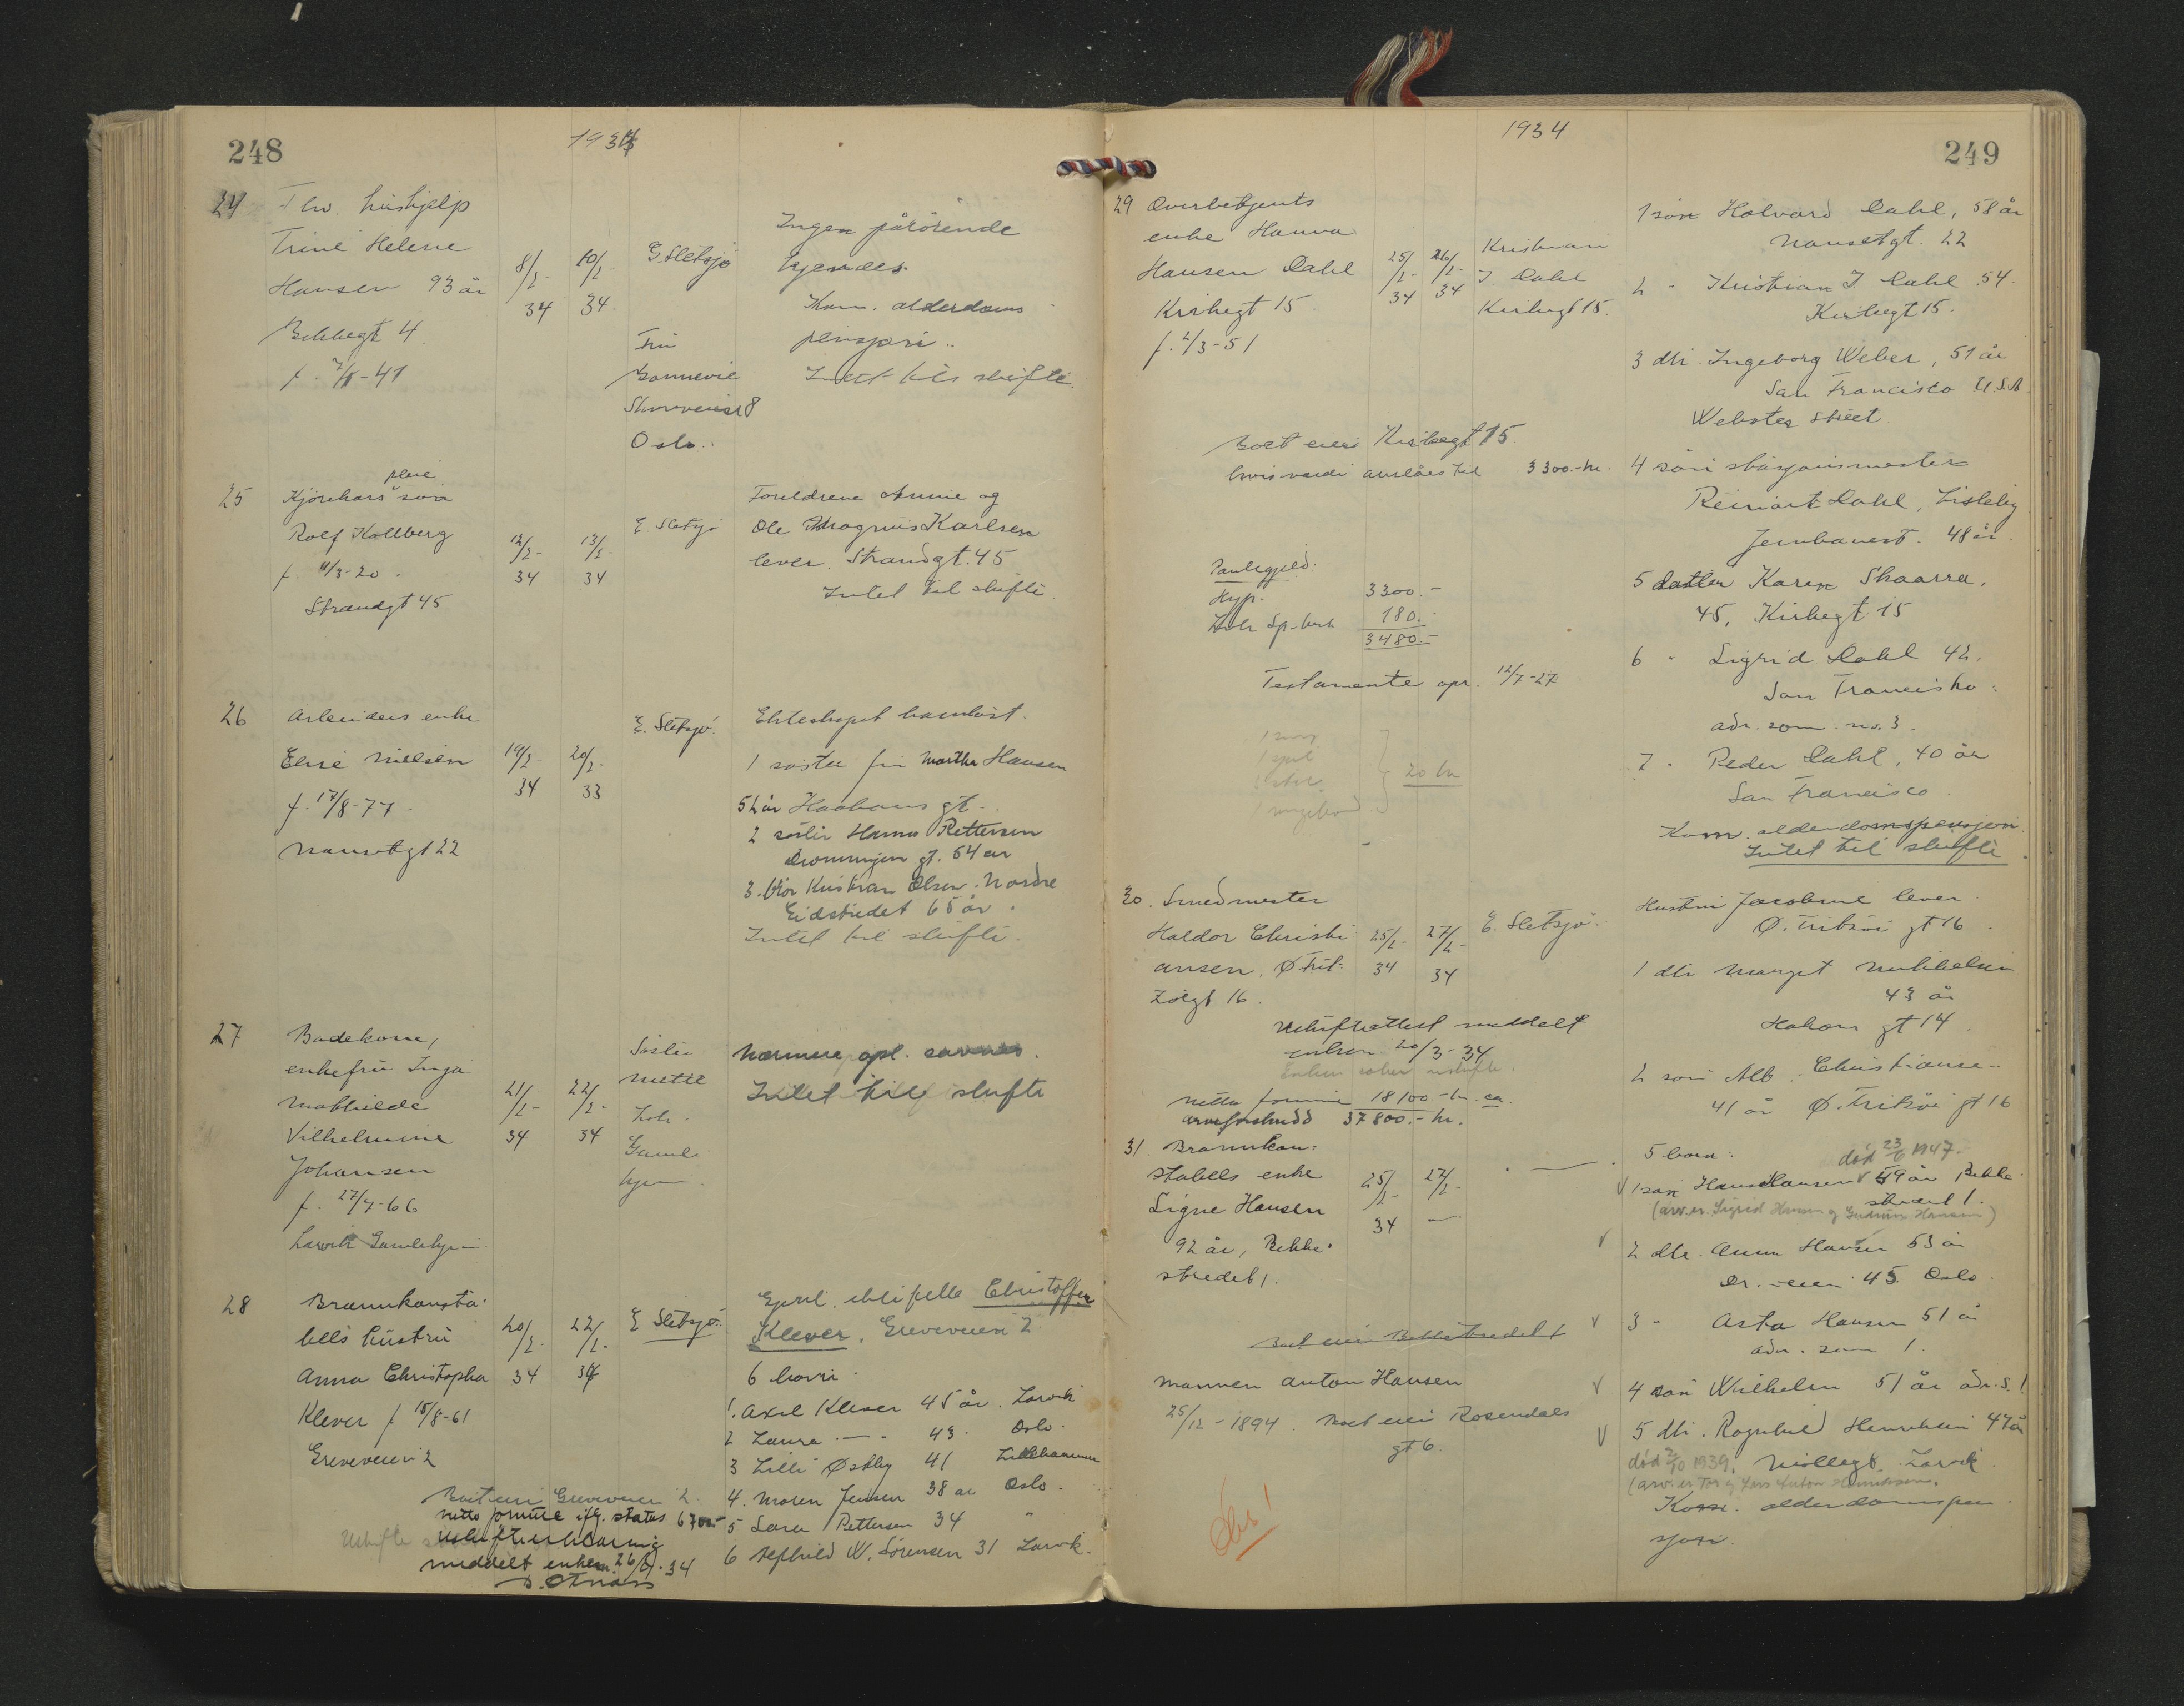 248
1934
24 Fhv. hushjelp
Trine Helene
Hansen 93 år
Bekkegt 4
f. 7/8-41
8/2-
34
10/2-
34
E. Sletsjö
Fru
Skovveien 8
Oslo.
Ingen pårörende
kjendes.
Kom. alderdoms
pensjon.
Intet til skifte.
25 Kjörekars pleiesön
Rolf Kollberg
f. 11/3-20.
Strandgt 45
12/2-
34
13/2-
34
E. Sletsjö
Foreldrene Annie og
Ole Magnus Karlsen
lever. Strandgt. 45
Intet til skifte.
26 Arbeiders enke
Elise Nielsen
f. 17/8-77.
Nansetgt 22
19/2-
34
20/2-
33
E. Sletsjö.
Ekteskapet barnlöst.
1 söster fru Martha Hansen
52 år Haakons gt.
2 söster Hanna Pettersen
Dronningen gt. 64 år
3. bror Kristian Olsen. Nordre
Eidstredet 65 år.
Intet til skifte.
27 Badekone,
enkefru Inga
Mathilde
Vilhelmine
Johansen
f. 27/7-66
Larvik Gamlehjem
21/2-
34
22/2-
34
Söster
Mette
Gamle
hjem.
Nærmere opl. savnes.
Intet till skifte
28 Brannkonsta-
bels hustru
Anna Christopha
Klever f 15/8-61
Greveveien 2
20/2-
34
22/2-
34
E Sletsjö.
Gjenl. ektefelle Christoffer
Klever. Greveveien 2.
6 barn.
1. Axel Klever 45 år. Larvik
2 Laura -"- 43. Oslo.
3 Lilli Östby 41 Lillehammer
4. Maren Jensen 38 år Oslo.
5 Sara Pettersen 34 "
6 Alfhild W. Sörensen 31 Larvik.
Boet eier Greveveien 2.
netto formue iflg. status 6700-
Uskifteerklæring
meddelt enkem. 26/4. 34
249
1934
29 Overbetjents
enke Hanna
Hansen Dahl
Kirkegt 15.
f. 2/3-51
25/2-
34
26/2-
34
Kristian
J Dahl
Kirkegt 15.
Boet eier Kirkegt 15
hvis verdi anslåes til 3300.-kr.
Pantegjeld:
Hyp. 3300.-
Larv. Sp-bank 180.-
3480.-
Testamente opr. 12/7-27
20 kr
1 sön Halvard Dahl, 58 år
Nansetgt. 22
2 - Kristian J Dahl 54.
Kirkegt 15.
3 dtr. Ingeborg Weber, 51 år
San Francisco U.S.A.
Webster Street
4 sön stasjonsmester
Reinart Dahl, Liseleby
Jernbanest. 48 år.
5 datter Karen Skaarra,
45, Kirkegt. 15
6 - Sigrid Dahl 42,
San Francisko.
adr. som no. 3.
7 - Peder Dahl, 40 år
San Francisco.
Kom. alderdomspensjon.
Intet til skifte.
30. Smedmester
Haldor Christi
ansen, Ø Frit-
zöegt 16.
25/2-
34
27/2-
34
E. Sletsjö.
Uskifteattest meddelt
enken 20/3-34
Enken sitter i uskifte.
netto formue 18100.-kr. ca.
arveforskudd 37800.- kr.
Hustru Jacobine lever.
Ø. Fritzöe gt 16.
1 dtr Margit Mikkelsen
43 år
Hakons gt 14.
2 sön Alb. Christianse..
41 år Ø. Fritzöe gt 16
31. Brannkon-
stabels enke
Signe Hansen
92 år, Bekke-
stredet 1.
25/2-
34
27/2-
-"-
Boet eier Bekkestredet 1
Mannen Anton Hansen
25/12-1894. Boet eier Rosendals
gt 6.
Obs!
5 barn:
död 23/6 1947.
1 sön Hans Hansen 59 år Bekke-
stredet 1.
(arv. er. Sigrid Hansen og Gudrun Hansen)
2 dtr. Anna Hansen 53 år
Dr. 45. Oslo.
3 - Asta Hansen 51 år
adr. som 1.
4 sön Wilhelm 51 år adr. s. 1
5 dtr. Ragnhild Henriksen 47 år
död 2/10 1939. Möllegt. Larvik
(arv. er Tor og Lars Anton Henriksen.
Kom. alderdomspen-
sjon.